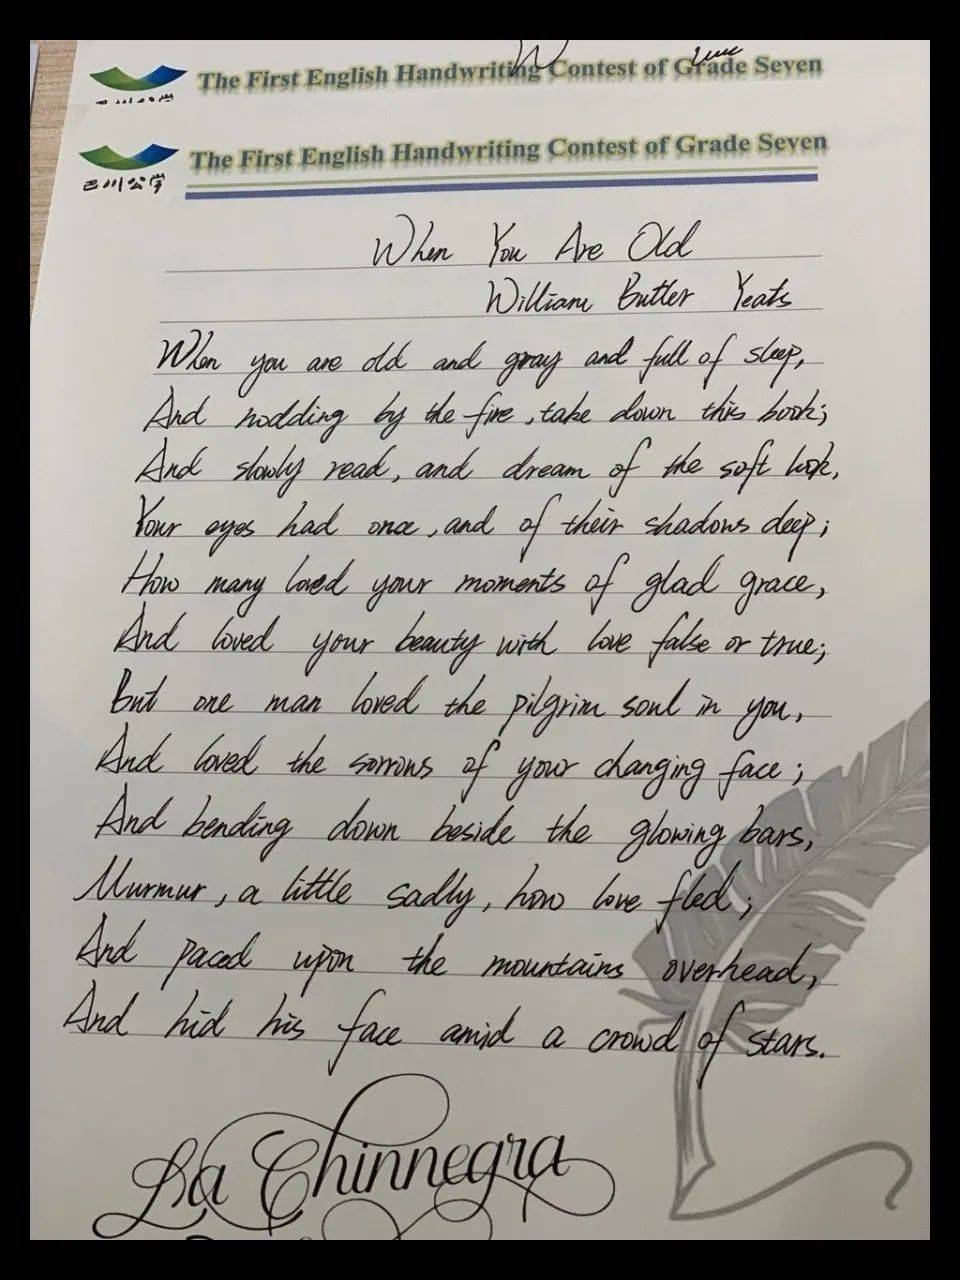 The First English Handwriting Contest of Grade Seven
巴川公学
The First English Handwriting Contest of Grade Seven
When You Are Old
William Butler Yeats
When you are old and gray and full of sleep,
And nodding by the fire, take down this book;
And slowly read, and dream of the soft look,
Your eyes had once, and of their shadows deep;
How many loved your moments of glad grace,
And loved your beauty with love false or true;
But one man loved the pilgrim soul in you,
And loved the sorrows of your changing face;
And bending down beside the glowing bars,
Murmur, a little sadly, how love fled;
And paced upon the mountains overhead,
And hid his face amid a crowd of stars.
La Chinnegra